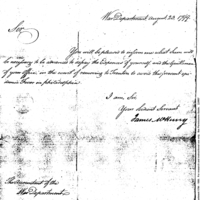 War Department August 30. 1799.
Sir,
You will be pleased to inform me what Sum will
be necessary to be advanced to defray the Expences of yourself and the Gentlemen
of your Office, on the event of removing to Trenton to avoid the present
Fever in philadelphia.
I am Sir
Your obedient Servant
James McHenry
The Accountant of the
War Department